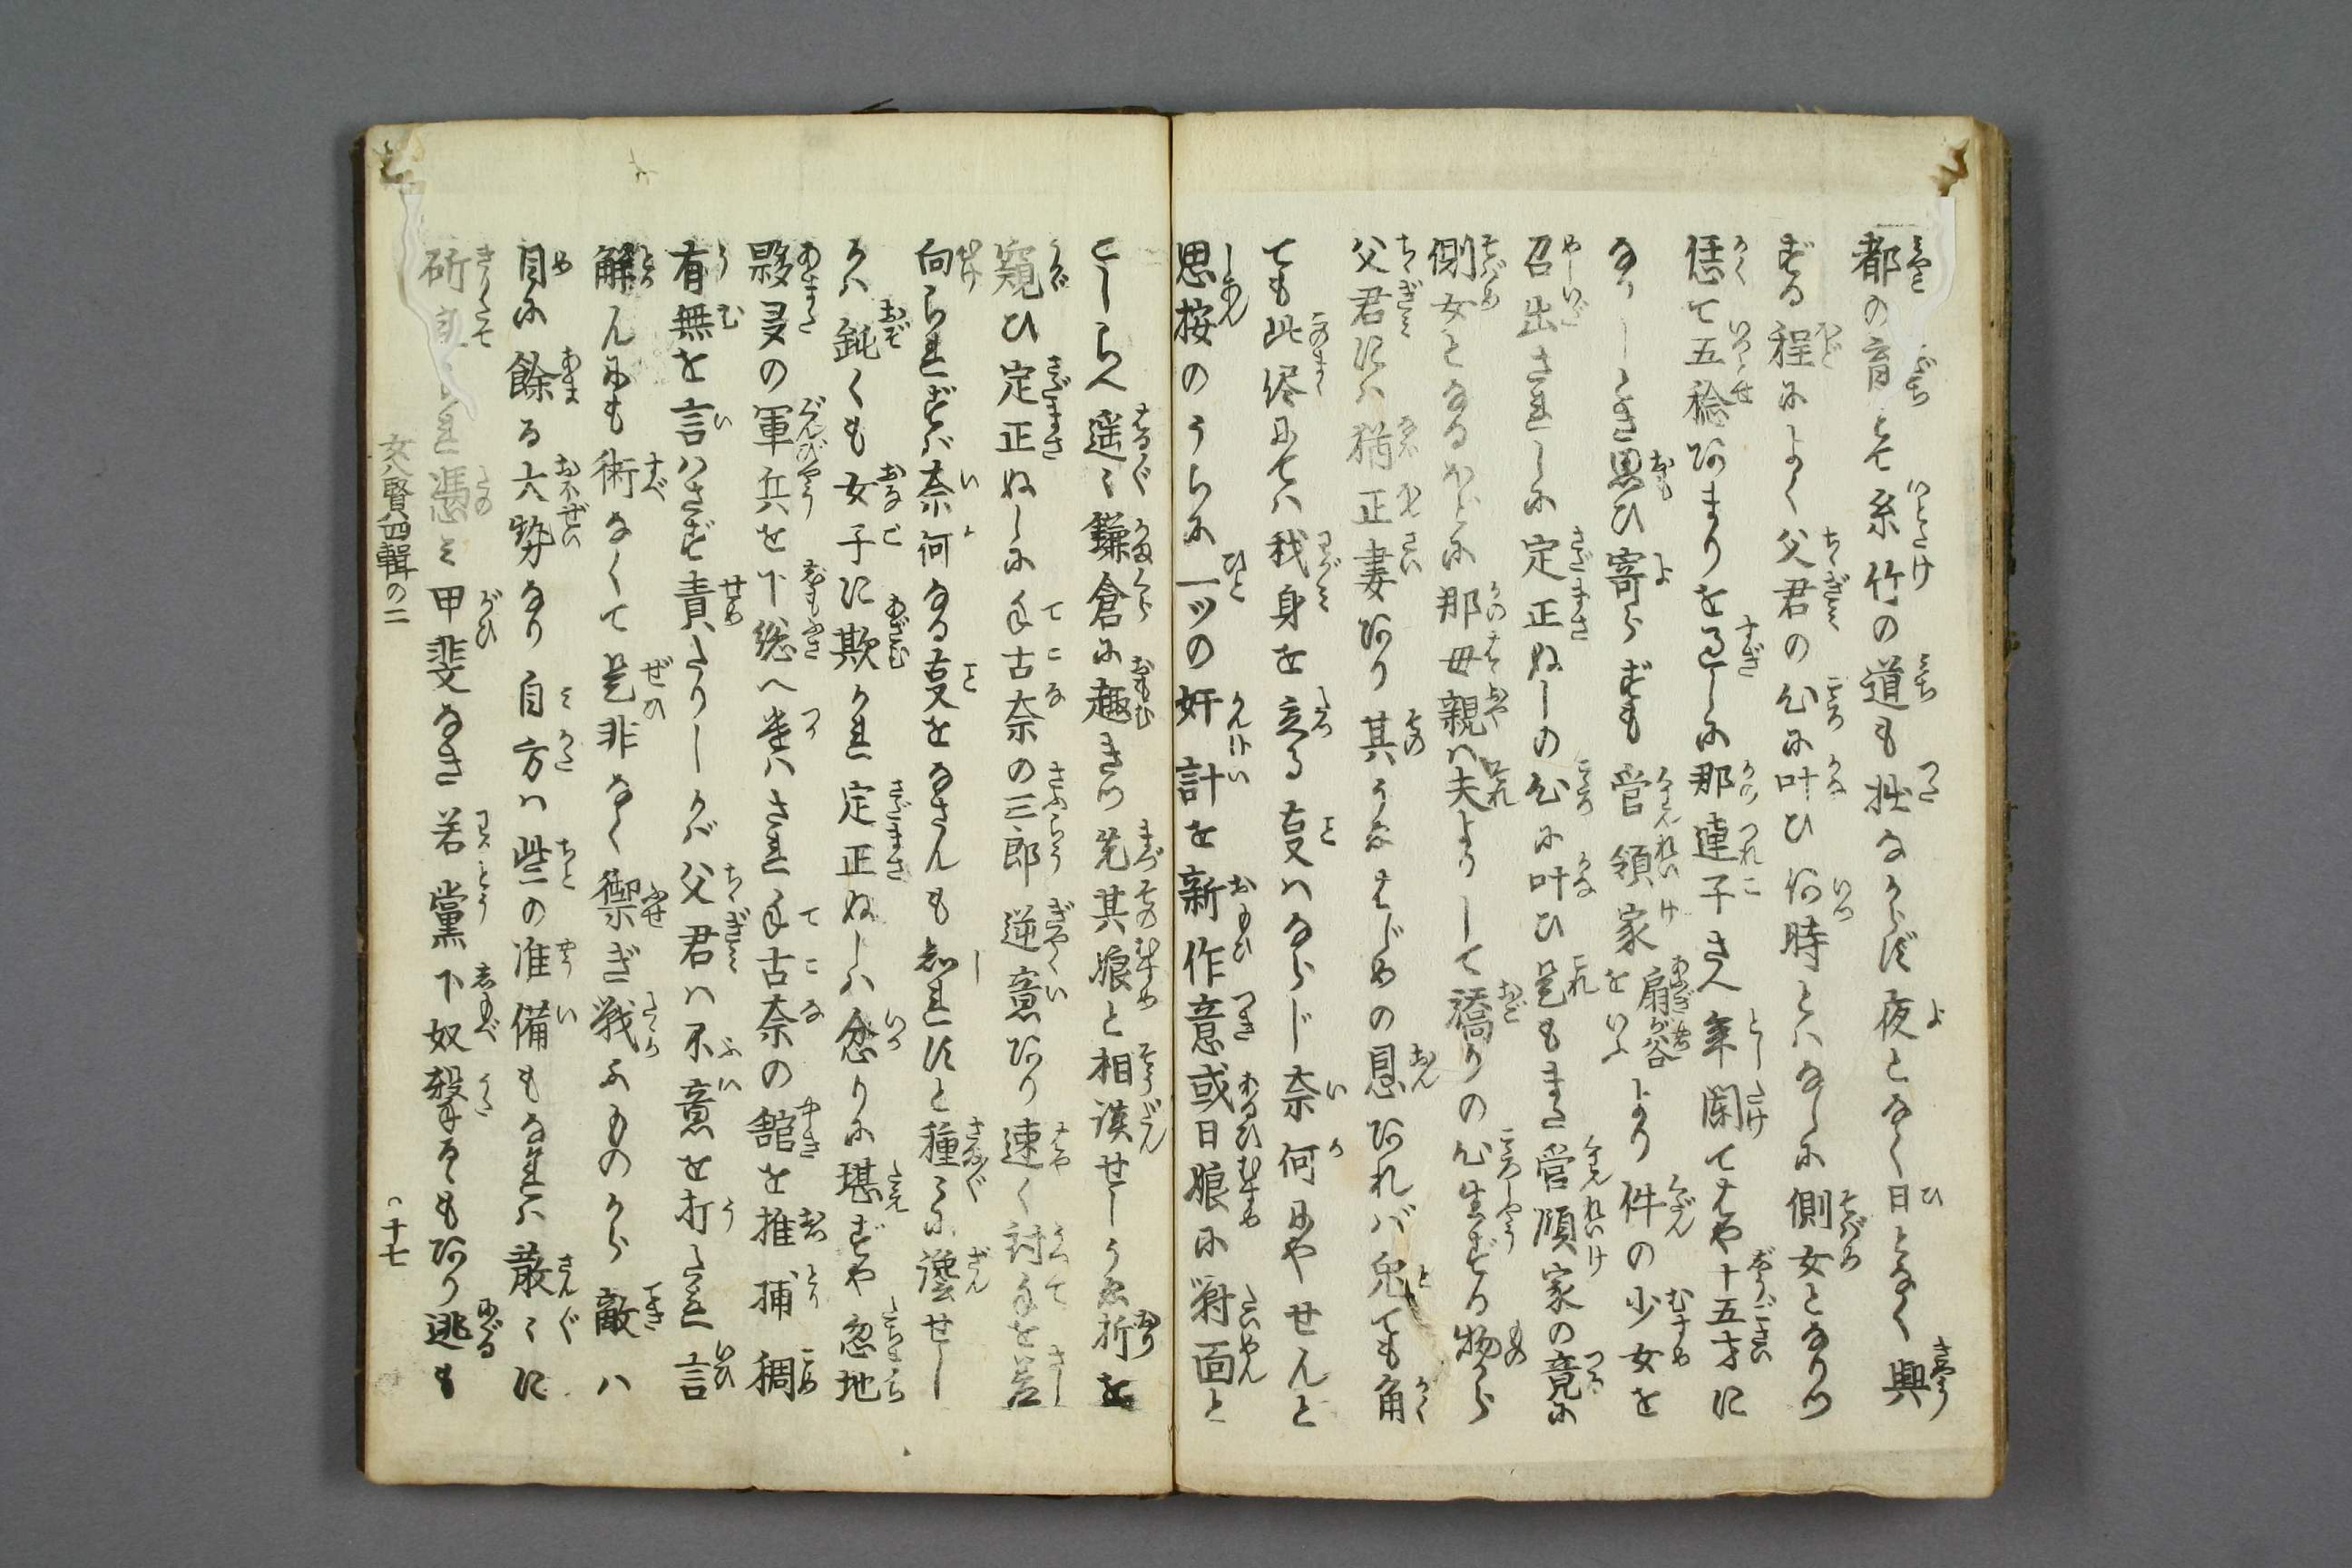 都の育とて糸竹の道も拙なからず夜となく日となく興
ずる程によく父君の心に叶ひ何時とハなしに側女となりつ
恁て五稔あまりを過しに那連子さへ年闌てはや十五才に
なりしとき思ひ寄らずも管領家を扇が谷いふより件の少女を
召出されしに定正ぬしの心に叶ひ是もまた管領家の竟に
側女となるからに那母親ハ夫よりして驕りの心生ずる物から
父君にハ猶正妻あり其うなはじめの恩あれバ兎ても角
ても此侭にてハ我身を立る事ハならじ奈何にやせんと
思按のうちに一ツの奸計を新作意或日娘に対面と
としらへ遥々鎌倉に趣きつ先其娘と相談せしうへ折を
窺ひ定正ぬしに手古奈の三郎逆意あり速く討手を差
向られずバ奈何なる事をなさんも知れずと種々に讒せし
かバ鈍くも女子に欺かれ定正ぬしハ忿りに堪ずや忽地
夥多の軍兵を下総へ遣ハされ手古奈の舘を推捕稠
有無を言ハさず責たりしかバ父君ハ不意を打たれ言
解んにも術なくて是非なく禦ぎ戦ふものから敵ハ
目に餘る大勢なり自方ハ些の准備もなけれハ散々に
斫立られ憑み甲斐なき若黨下奴撃るゝもあり逃も
女八賢四輯の二
十七